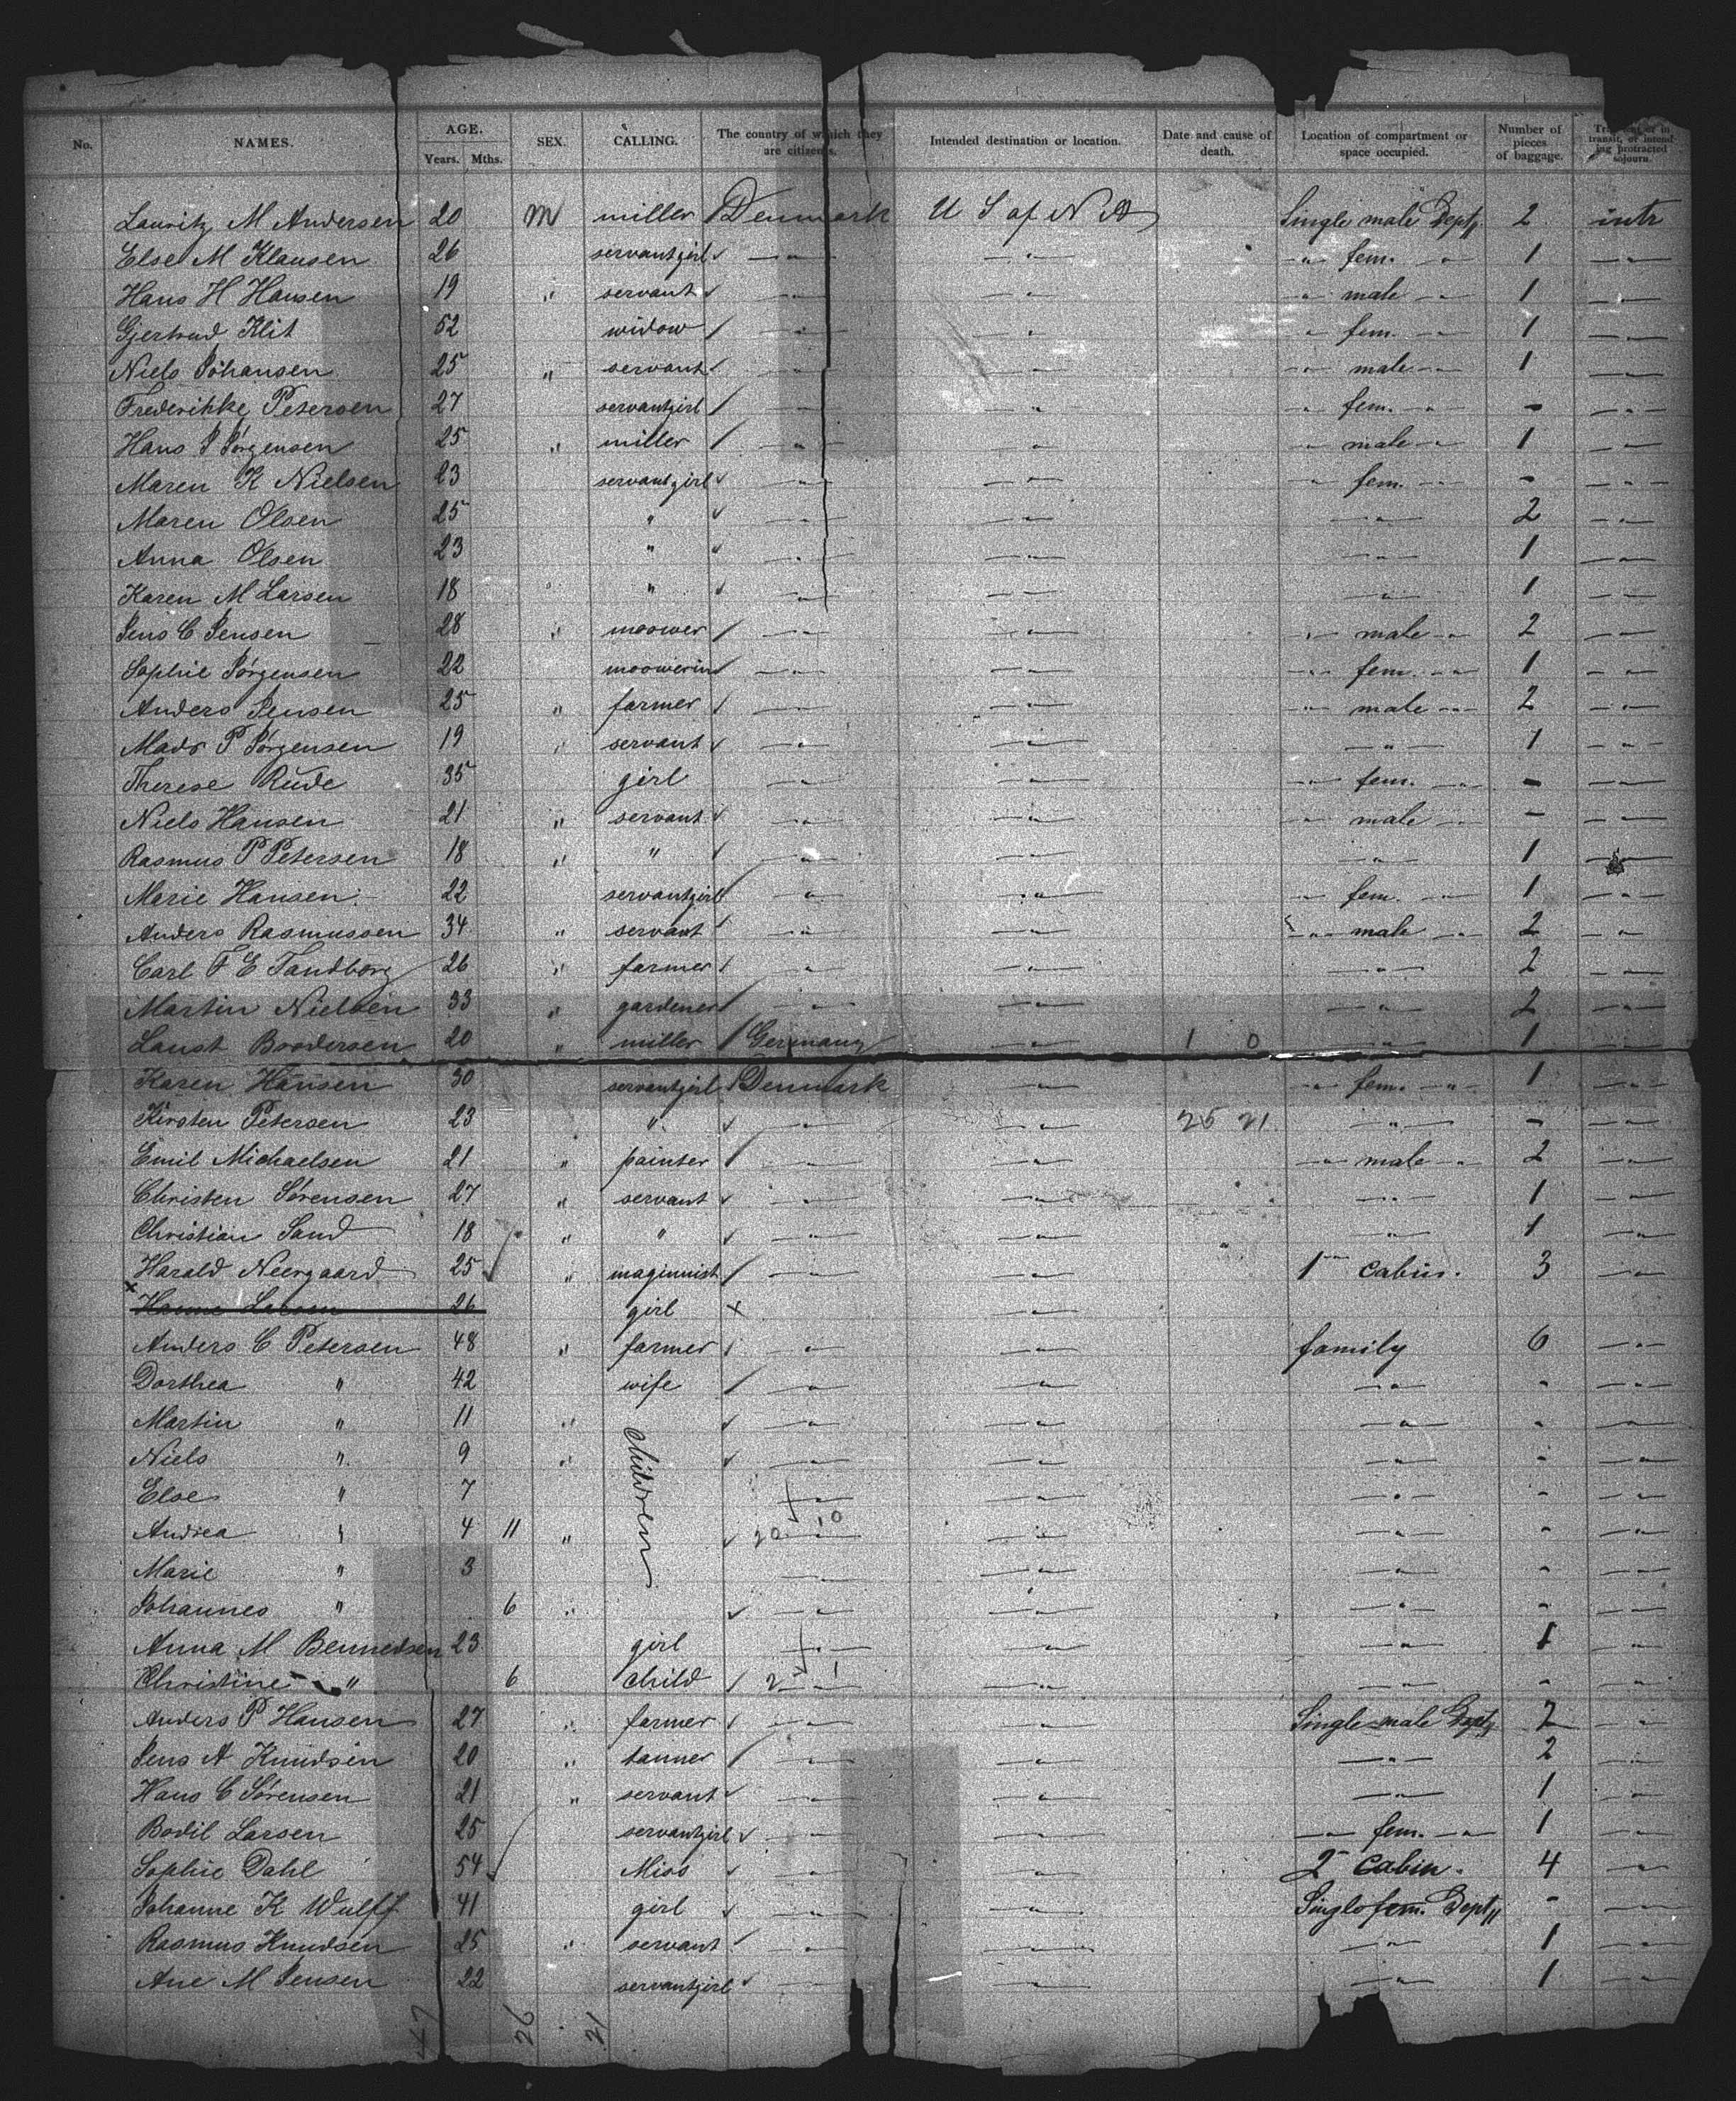 No. NAMES. AGE. Years. Mths. SEX. CALLING. The country of which they are citizens. Intended destination or location. Date and cause of death. Location of compartment or space occupied. Number of pieces of baggage. Transient or in transit, or intending protracted sojourn.
Lauritz M Andersen 20 m miller Denmark U S of N A Single male Dept. 2 intr
Else M Klausen 26 servantgirl — " — — " — — " — fem. — " — 1 — " —
Hans H Hansen 19 " servant — " — — " — — " — male — " — 1 — " —
Gjertrud Klit 52 widow — " — — " — — " — fem. — " — 1 — " —
Niels Johansen 25 " servant — " — — " — — " — male — " — 1 — " —
Frederikke Petersen 27 servantgirl — " — — " — — " — fem. — " — - — " —
Hans P Jørgensen 25 " miller — " — — " — — " — male — " — 1 — " —
Maren K Nielsen 23 servantgirl — " — — " — — " — fem. — " — - — " —
Maren Olsen 25 " — " — — " — — " — 2 — " —
Anna Olsen 23 " — " — — " — — " — 1 — " —
Karen M Larsen 18 " — " — — " — — " — 1 — " —
Jens C Jensen 28 " moower — " — — " — — " — male — " — 2 — " —
Sophie Jørgensen 22 moowerin — " — — " — — " — fem. — " — 1 — " —
Anders Jensen 25 " farmer — " — — " — — " — male — " — 2 — " —
Mads P Jørgensen 19 " servant — " — — " — — " — 1 — " —
Therese Rude 35 girl — " — — " — — " — fem. — " — - — " —
Niels Hansen 21 " servant — " — — " — — " — male — " — - — " —
Rasmus P Petersen 18 " " — " — — " — — " — 1 — " —
Marie Hansen 22 servantgirl — " — — " — — " — fem. — " — 1 — " —
Anders Rasmussen 34 " servant — " — — " — — " — male — " — 2 — " —
Carl F E Tandborg 26 " farmer — " — — " — — " — 2 — " —
Martin Nielsen 33 " gardener — " — — " — — " — 2 — " —
Laust Brodersen 20 " miller Germany — " — 1 0 — " — 1 — " —
Karen Hansen 30 servantgirl Denmark — " — — " — fem. — " — 1 — " —
Kirsten Petersen 23 " — " — — " — 25 21 — " — - — " —
Emil Michaelsen 21 " painter — " — — " — — " — male — " — 2 — " —
Christen Sørensen 27 " servant — " — — " — — " — 1 — " —
Christian Sand 18 " " — " — — " — — " — 1 — " —
Harald Neergaard 25 " maginnist — " — — " — 1 cabin. 3 — " —
x Hanne Larsen 26 girl x — " —
Anders C Petersen 48 " farmer — " — — " — family 6 — " —
Dorthea " 42 wife — " — — " — — " — - — " —
Martin " 11 " children — " — — " — — " — - — " —
Niels " 9 " — " — — " — — " — - — " —
Else " 7 — " — — " — — " — - — " —
Andrea " 4 11 " 20 — " — 10 — " — — " — - — " —
Marie " 3 — " — — " — — " — - — " —
Johannes " 6 " — " — — " — — " — - — " —
Anna M Bennedsen 23 girl — " — — " — — " — 1 — " —
Christine " 6 child 2 — " — 1 — " — — " — - — " —
Anders P Hansen 27 " farmer — " — — " — Single male Dept. 2 — " —
Jens A Knudsen 20 " tanner — " — — " — — " — 2 — " —
Hans C Sørensen 21 " servant — " — — " — — " — 1 — " —
Bodil Larsen 25 servantgirl — " — — " — — " — fem. — " — 1 — " —
Sophie Dahl 54 Miss — " — — " — 2 cabin. 4 — " —
Johanne K Wulff 41 girl — " — — " — Single fem. Dept. - — " —
Rasmus Knudsen 25 " servant — " — — " — — " — 1 — " —
Ane M Jensen 22 servantgirl — " — — " — — " — 1 — " —
47 26 21